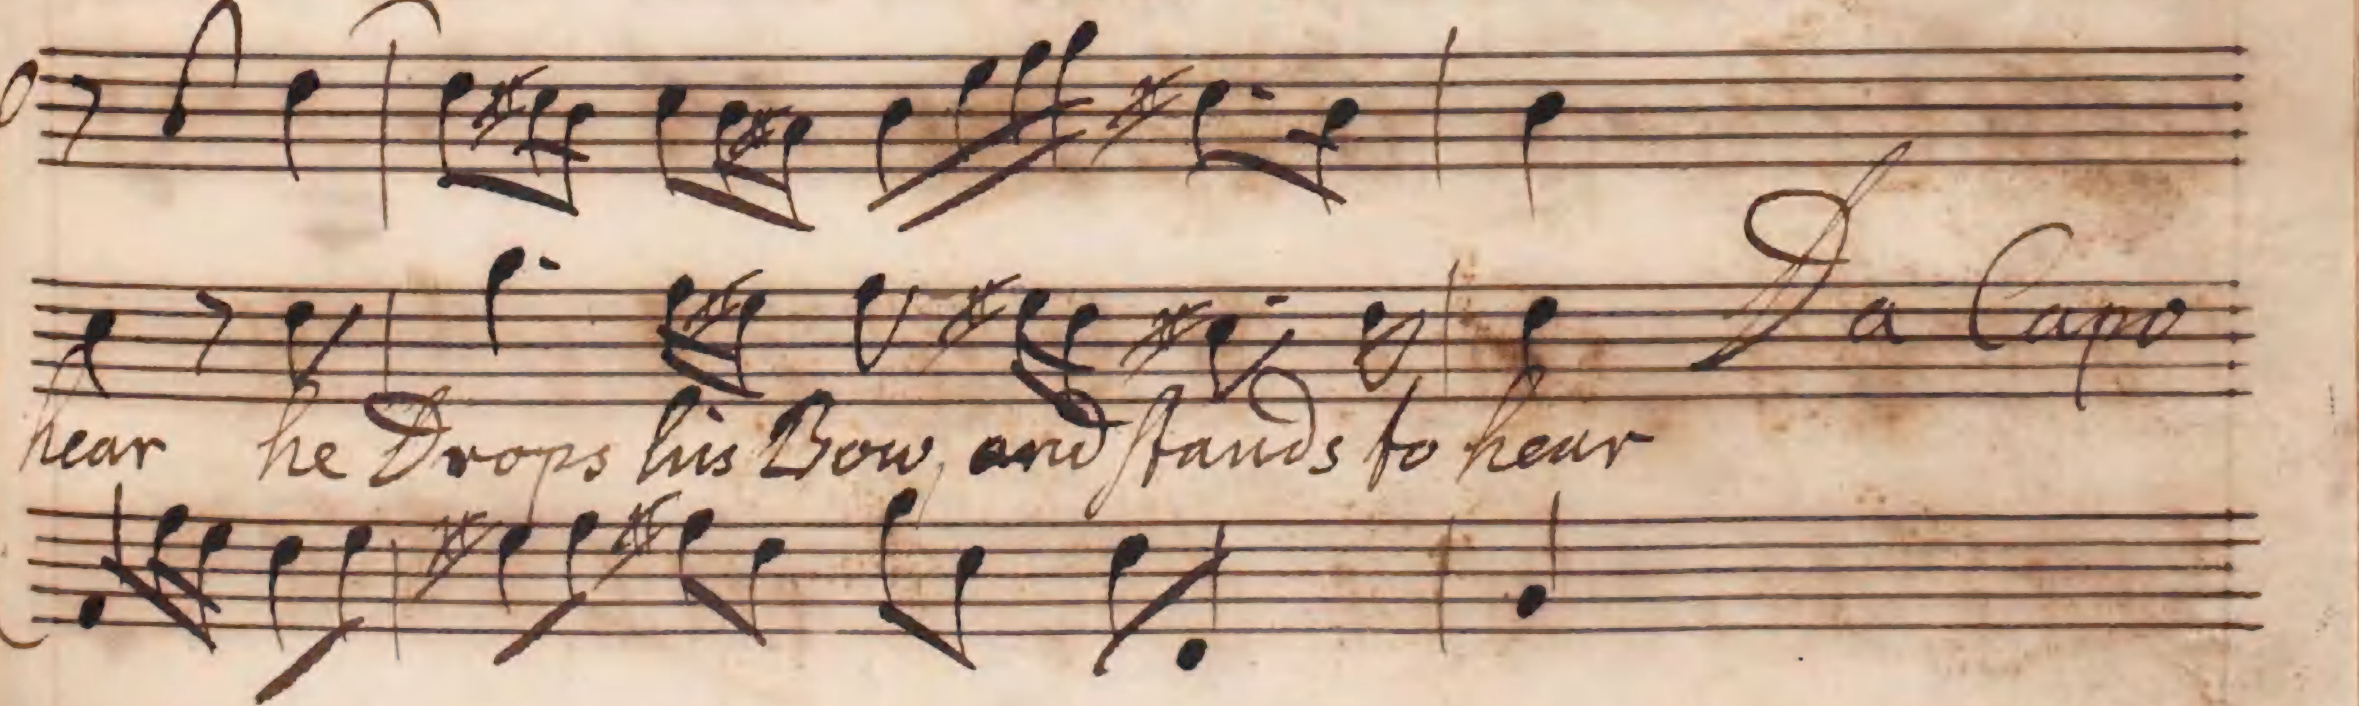 Da Capo
hear he Drops his Bow, and stands to hear